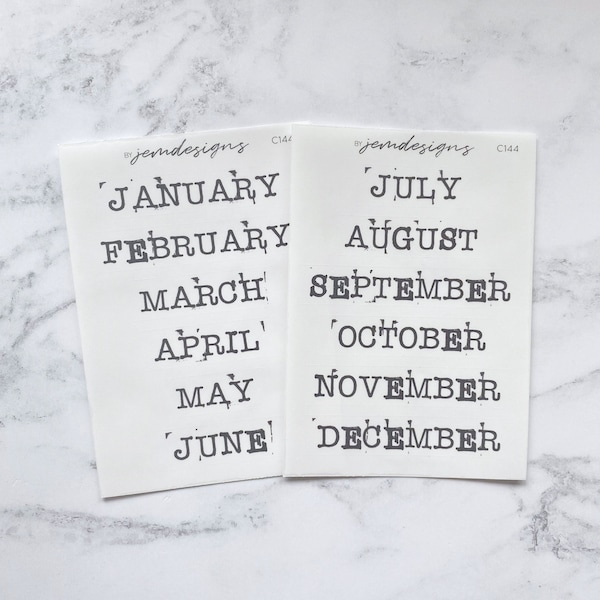 BY jemdesigns C144
JANUARY
FEBRUARY
MARCH
APRIL
MAY
JUNE
BY jemdesigns C144
JULY
AUGUST
SEPTEMBER
OCTOBER
NOVEMBER
DECEMBER